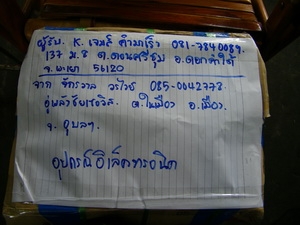 ผู้รับ. K. เจมส์ คำมาเร็ว 081-7840089.
137 ม.8 ต.ดอนศรีชุม อ.ดอกคำใต้
จ.พะเยา 56120
จาก จักรวาล วรไวย์ 085-0042773.
อู่พลาชัยเซอวิส ต.ในเมือง อ.เมือง.
จ. อุบลฯ
อุปกรณ์อิเล็คทรอนิค